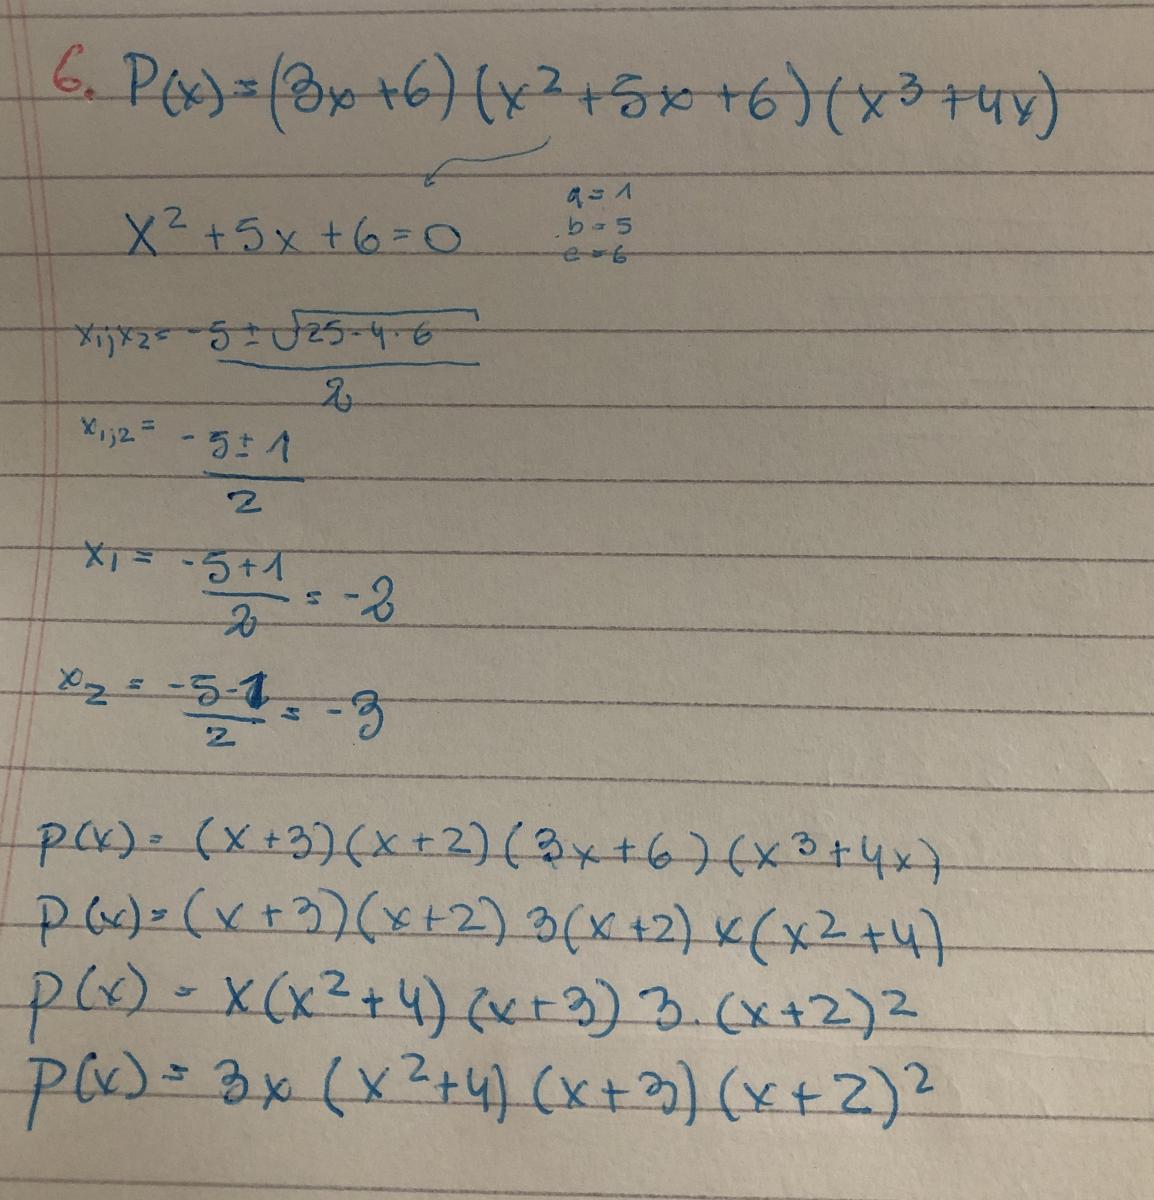 6. P(x) = (3x+6) (x² + 5x + 6) (x³ + 4x)
x² + 5x + 6 = 0
a = 1
b = 5
c = 6
x₁;x₂ = (-5 ± √(25 - 4 · 6)) / 2
x₁;₂ = (-5 ± 1) / 2
x₁ = (-5 + 1) / 2 = -2
x₂ = (-5 - 1) / 2 = -3
p(x) = (x+3)(x+2)(3x+6)(x³+4x)
p(x) = (x+3)(x+2) 3(x+2) x(x²+4)
p(x) = x(x²+4) (x+3) 3 · (x+2)²
p(x) = 3x (x²+4) (x+3) (x+2)²